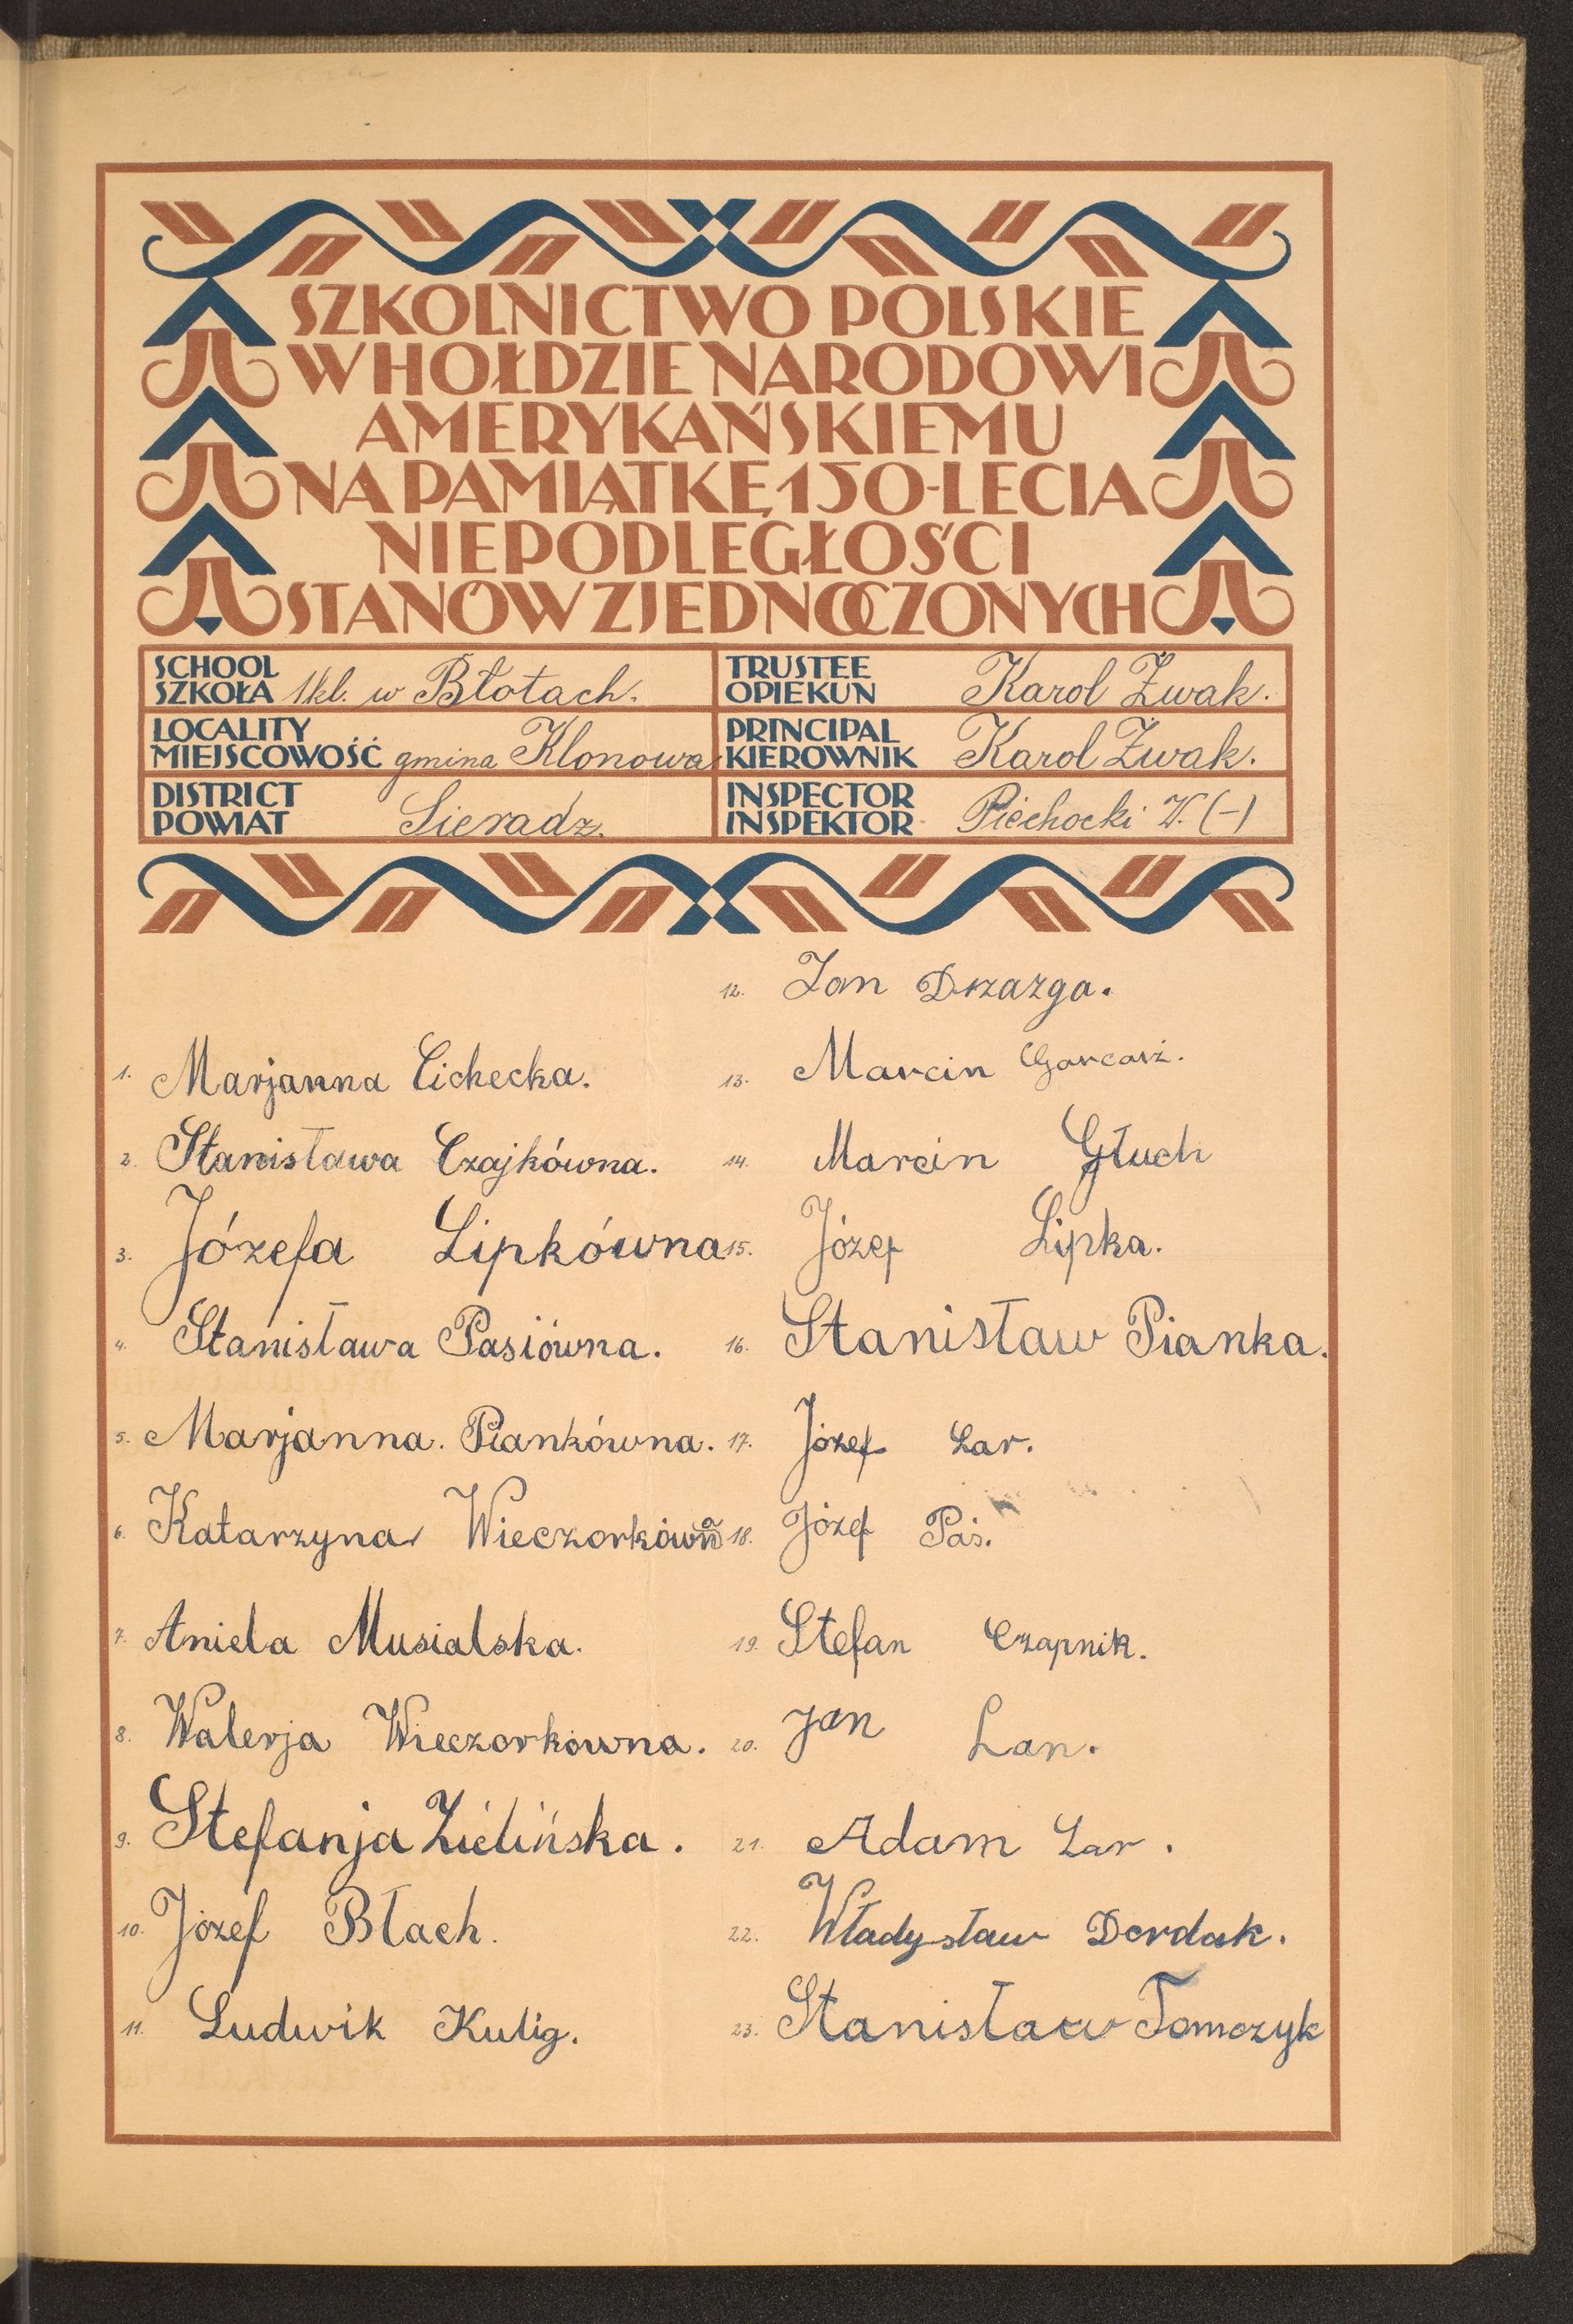 SZKOLNICTWO POLSKIE
W HOŁDZIE NARODOWI
AMERYKAŃSKIEMU
NA PAMIĄTKĘ 150-LECIA
NIEPODLEGŁOŚCI
STANÓW ZJEDNOCZONYCH
SCHOOL
SZKOŁA 1kl. w Błotach.
TRUSTEE
OPIEKUN Karol Żwak.
LOCALITY
MIEJSCOWOŚĆ gmina Klonowa
PRINCIPAL
KIEROWNIK Karol Żwak.
DISTRICT
POWIAT Sieradz.
INSPECTOR
INSPEKTOR Piechocki W. (-)
1. Marjanna Cichecka.
2. Stanisława Czajkówna.
3. Józefa Lipkówna
4. Stanisława Pasiówna.
5. Marjanna. Piankówna.
6. Katarzyna Wieczorkówna
7. Aniela Musialska.
8. Walerja Wieczorkówna.
9. Stefanja Zielińska.
10. Józef Błach.
11. Ludwik Kulig.
12. Jan Drzazga.
13. Marcin Garcarz.
14. Marcin Głuch
15. Józef Lipka.
16. Stanisław Pianka.
17. Józef Łar.
18. Józef Paś.
19. Stefan Czapnik.
20. Jan Lan.
21. Adam Łar.
22. Władysław Dordak.
23. Stanisław Tomczyk